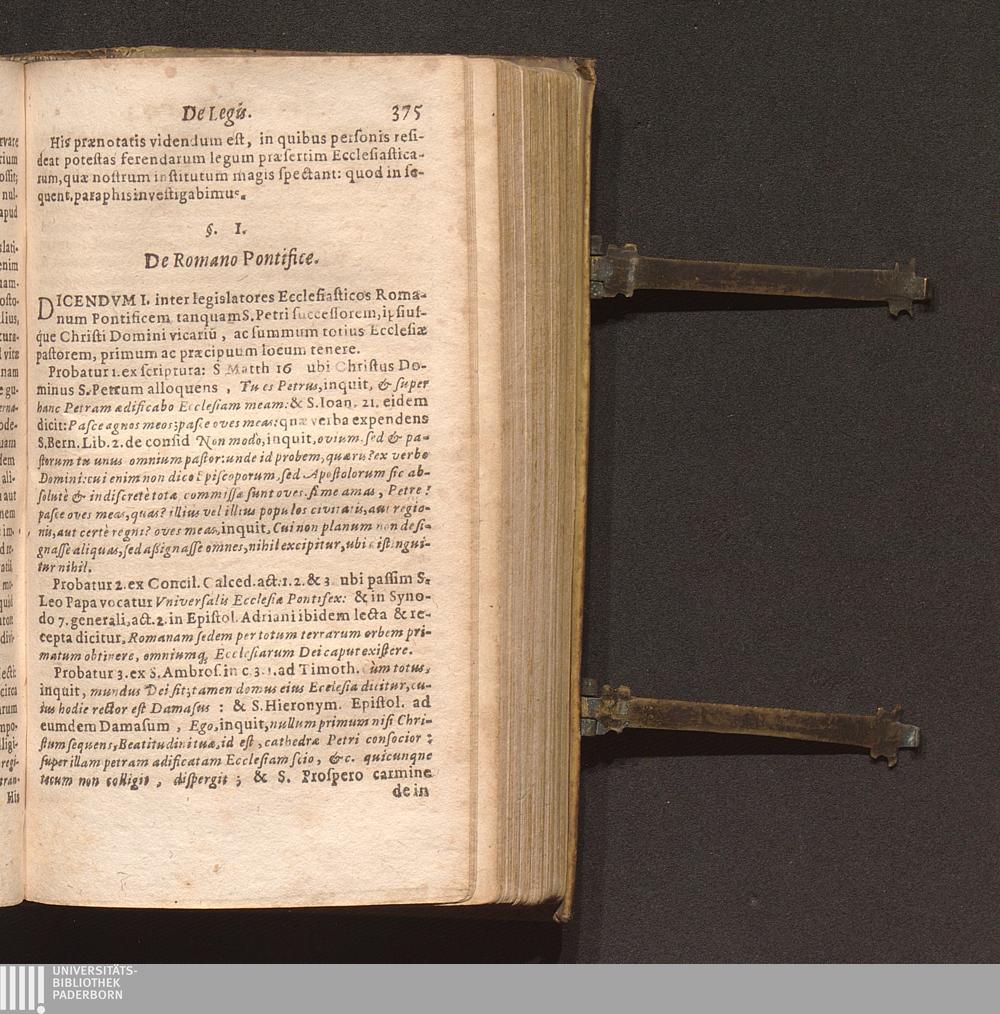 De Legib. 375
His prænotatis videndum est, in quibus personis resi-
deat potestas ferendarum legum præsertim Ecclesiastica-
rum, quæ nostrum institutum magis spectant: quod in se-
quent. paraphis investigabimus.
§. I.
De Romano Pontifice.
DICENDVM I. inter legislatores Ecclesiasticos Roma-
num Pontificem tanquam S. Petri successorem, ipsius-
que Christi Domini vicariũ, ac summum totius Ecclesiæ
pastorem, primum ac præcipuum locum tenere.
Probatur 1. ex scriptura: S Matth 16 ubi Christus Do-
minus S. Petrum alloquens, Tu es Petrus, inquit, & super
hanc Petram ædificabo Ecclesiam meam: & S. Ioan. 21. eidem
dicit: Pasce agnos meos; pasce oves meas: quæ verba expendens
S. Bern. Lib. 2. de consid Non modò, inquit, ovium, sed & pa-
storum tu unus omnium pastor: unde id probem, quæris? ex verbo
Domini: cui enim non dico Episcoporum, sed Apostolorum sic ab-
solutè & indiscretè totæ commissæ sunt oves. si me amas, Petre?
pasce oves meas, quas? illius vel illius populos civitatis, aut regio-
nis, aut certè regni? oves meas, inquit, Cui non planum non desi-
gnasse aliquas, sed assignasse omnes, nihil excipitur, ubi distingui-
tur nihil.
Probatur 2. ex Concil. Calced. act. 1. 2. & 3. ubi passim S.
Leo Papa vocatur Vniversalis Ecclesiæ Pontifex: & in Syno-
do 7. generali, act. 2. in Epistol. Adriani ibidem lecta & re-
cepta dicitur, Romanam sedem per totum terrarum orbem pri-
matum obtinere, omniumq; Ecclesiarum Dei caput existere.
Probatur 3. ex S. Ambros. in c. 3. 1. ad Timoth. Cùm totus,
inquit, mundus Dei sit; tamen domus eius Ecclesia dicitur, cu-
ius hodie rector est Damasus: & S. Hieronym. Epistol. ad
eumdem Damasum, Ego, inquit, nullum primum nisi Chri-
stum sequens, Beatitudini tuæ, id est, cathedræ Petri consocior:
super illam petram ædificatam Ecclesiam scio, &c. quicunque
tecum non colligit, dispergit; & S. Prospero carmine
de in
rvare
tium
ossit;
nul-
apud
slati-
enim
uam-
osto-
lius,
tura-
vitæ
nam
e gu-
erna-
ode-
uam
dem
ali-
aut
nem
im-
circa
arum
mpo-
lligi-
regi-
tran-
His
UNIVERSITÄTS-
BIBLIOTHEK
PADERBORN